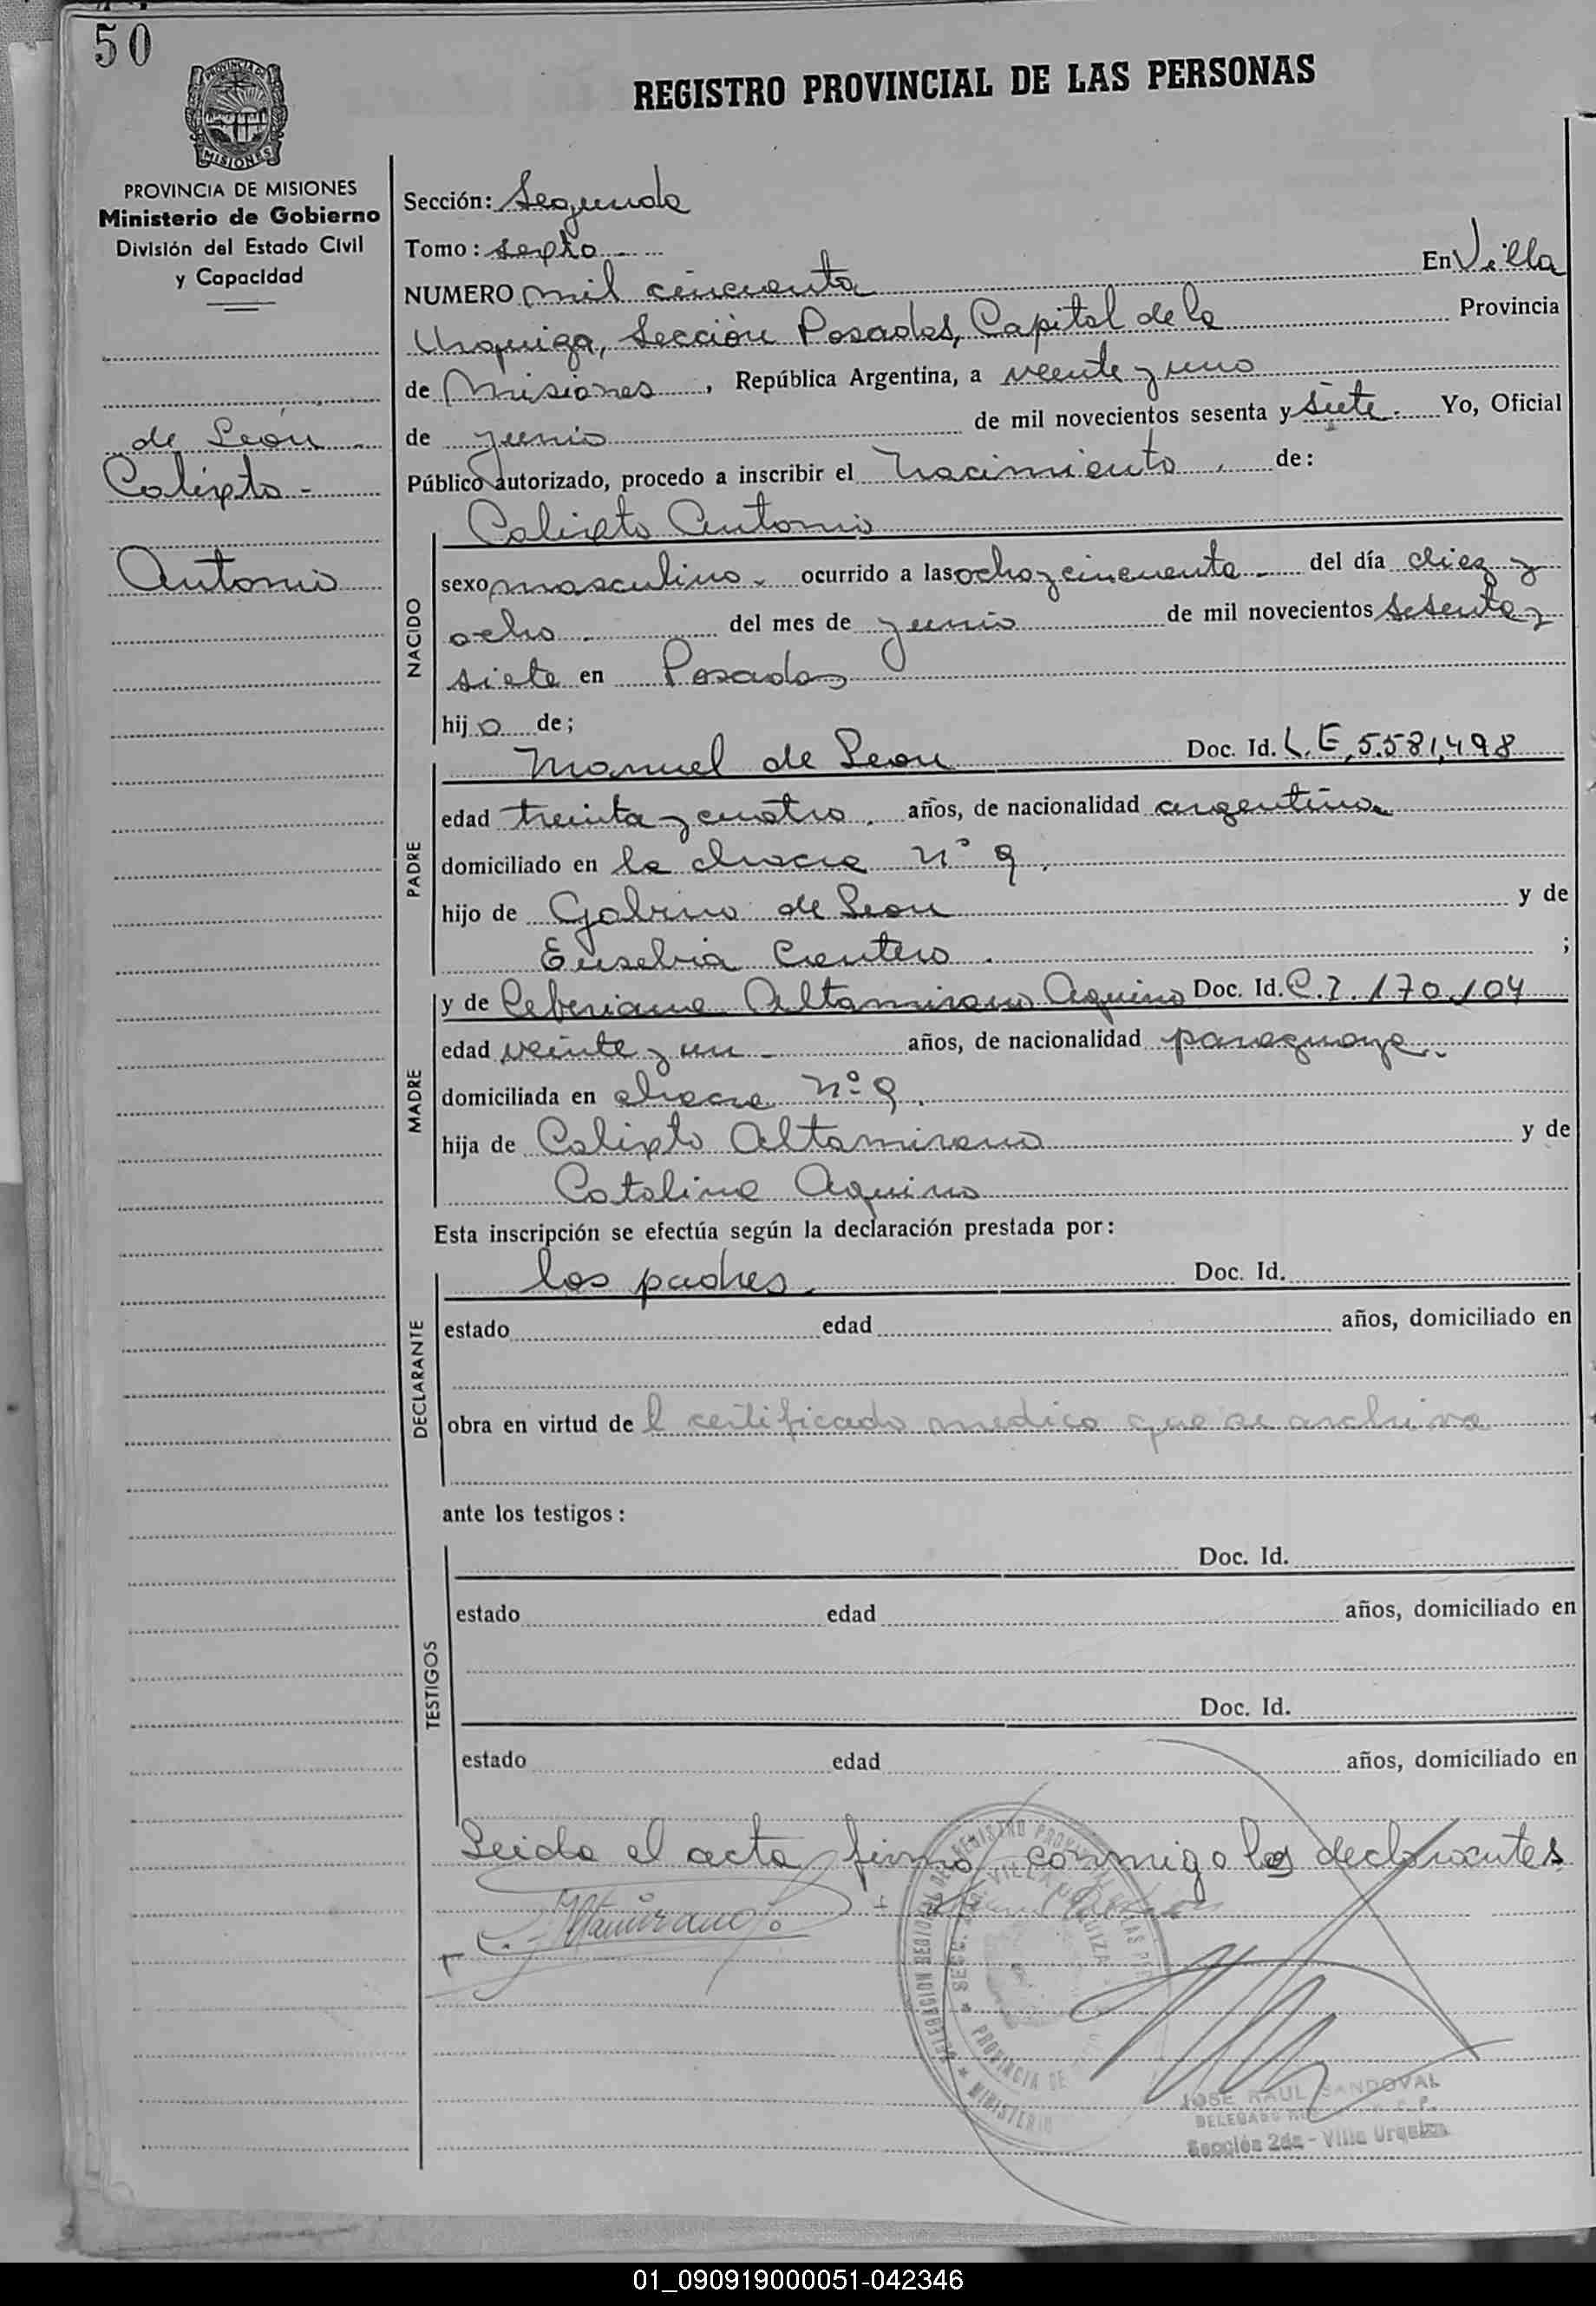 50
REGISTRO PROVINCIAL DE LAS PERSONAS
PROVINCIA DE MISIONES
PROVINCIA DE MISIONES
Ministerio de Gobierno
División del Estado Civil
y Capacidad
de León
Calixto -
Antonio
Sección: Segunda
Tomo: sexto
NUMERO mil cincuenta En Villa
Urquiza, Sección Posadas, Capital de la Provincia
de Misiones, República Argentina, a veinte y uno
de junio de mil novecientos sesenta y siete. Yo, Oficial
Público autorizado, procedo a inscribir el nacimiento, de:
Calixto Antonio
NACIDO
sexo masculino. ocurrido a las ocho y cincuenta del día diez y
ocho del mes de junio de mil novecientos sesenta y
siete en Posadas
hijo de;
Manuel de Leon Doc. Id. L.E. 5.581,498
PADRE
edad treinta y cuatro, años, de nacionalidad argentina
domiciliado en la chacra N° 9.
hijo de Gabino de Leon y de
Eusebia Centero. ;
y de Ceberiana Altamirano Aquino Doc. Id. C.I. 170.104
MADRE
edad veinte y un años, de nacionalidad paraguaya.
domiciliada en chacra N° 9.
hija de Calixto Altamirano y de
Catalina Aquino
Esta inscripción se efectúa según la declaración prestada por:
los padres. Doc. Id.
DECLARANTE
estado edad años, domiciliado en
obra en virtud de l certificado medico que se archiva
ante los testigos:
TESTIGOS
Doc. Id.
estado edad años, domiciliado en
Doc. Id.
estado edad años, domiciliado en
Leida el acta firma conmigo los declarantes
Altamirano
VILLA URQUIZA
PROVINCIA DE
MINISTERIO
JOSE RAUL SANDOVAL
DELEGADO
Sección 2da - Villa Urquiza
01_090919000051-042346